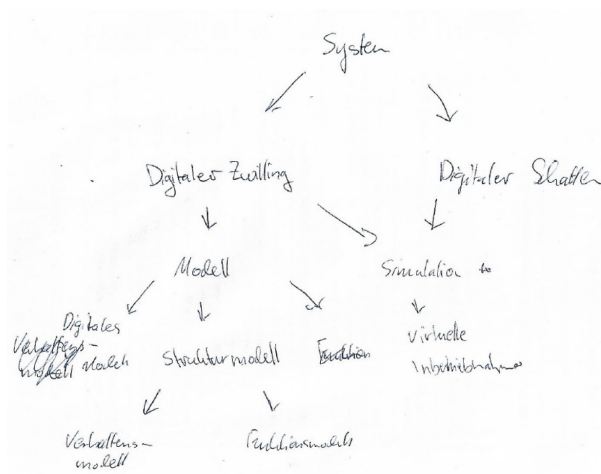 System
Digitaler Zwilling
Digitaler Schatten
Modell
Simulation
Digitales
Modell
Verhaltens-
modell
Strukturmodell
Funktion
Virtuelle
Inbetriebnahme
Verhaltens-
modell
Funktionsmodell